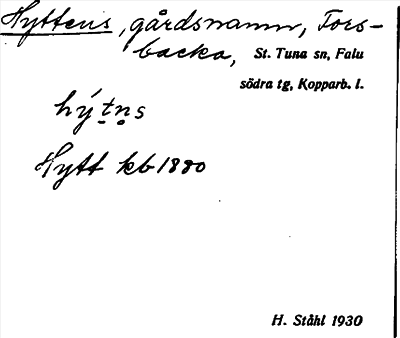 Hyttens, gårdsnamn, Fors-
backa, St. Tuna sn, Falu
södra tg, Kopparb. l.
hý̱ṯn̥s
Hytt kb 1880
H. Ståhl 1930